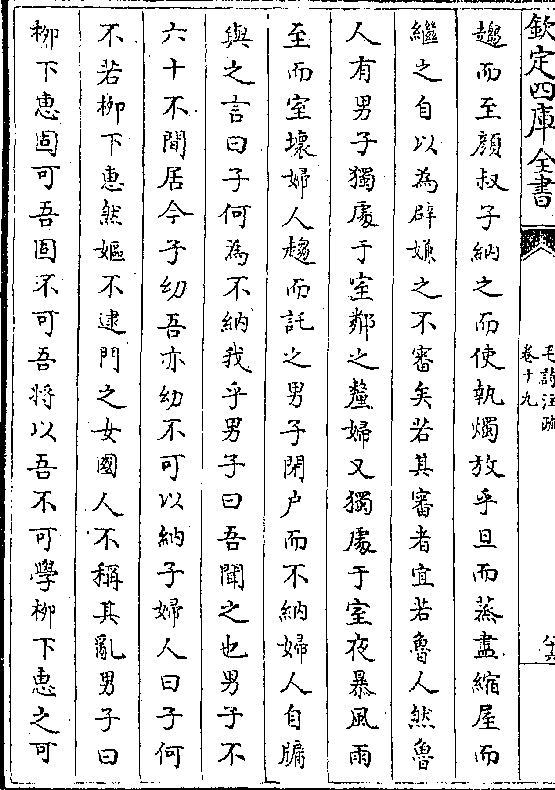 欽定四庫全書
毛詩注疏
卷十九
趨而至顏叔子納之而使執燭放乎旦而蒸盡縮屋而
繼之自以為辟嫌之不審矣若其審者宜若魯人然魯
人有男子獨處于室鄰之釐婦又獨處于室夜暴風雨
至而室壞婦人趨而託之男子閉户而不納婦人自牖
與之言曰子何為不納我乎男子曰吾聞之也男子不
六十不間居今子幼吾亦幼不可以納子婦人曰子何
不若柳下惠然嫗不逮門之女國人不稱其亂男子曰
柳下惠固可吾固不可吾將以吾不可學柳下惠之可